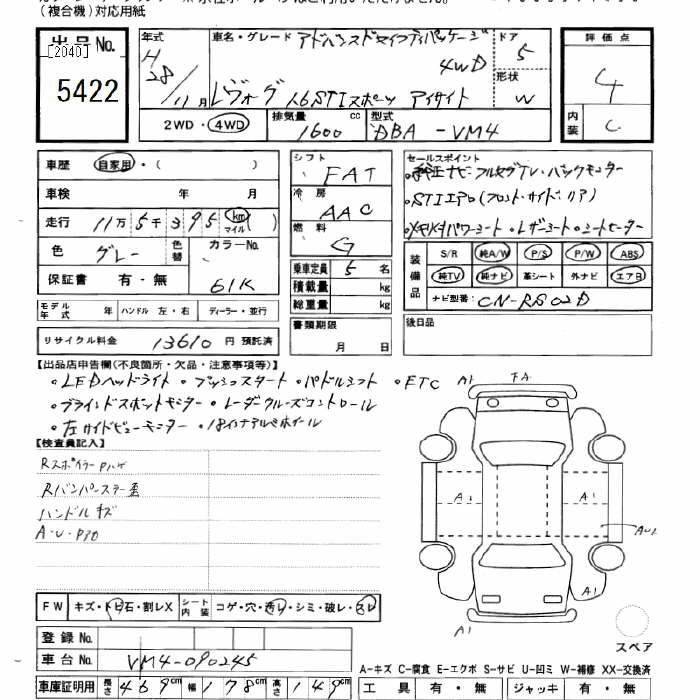 (複合機)対応用紙
出品No.
[2040]
5422
年式 H 28/11月
車名・グレード アドバンスドセイフティパッケージ 4WD
レヴォーグ 1.6STIスポーツ アイサイト
ドア 5
形状 W
2WD・4WD
排気量 1600 cc
型式 DBA-VM4
評価点 4
内装 C
車歴 自家用・( )
車検 年 月
走行 11万5千395 km マイル ( )
色 グレー 色替 カラーNo. 61K
保証書 有・無
モデル年式 年 ハンドル 左・右 ディーラー・並行
リサイクル料金 13610 円 預託済
シフト FAT
冷房 AAC
燃料 G
乗車定員 5 名
積載量 kg
総重量 kg
書類期限
月 日
セールスポイント
純正ナビ・フルセグTV・バックモニター
STIエアロ(フロント・サイド・リア)
パワーシート・レザーシート・シートヒーター
装備品 S/R 純A/W P/S P/W ABS
純TV 純ナビ 革シート 外ナビ エアB
ナビ型番: CN-R802D
後日品
【出品店申告欄(不良箇所・欠品・注意事項等)】
・LEDヘッドライト ・プッシュスタート ・パドルシフト ・ETC
・ブラインドスポットモニター ・レーダークルーズコントロール
・左サイドビューモニター ・18インチアルミホイール
【検査員記入】
Rスポイラー Pハゲ
Rバンパーステー歪
ハンドルキズ
A・U・P
A1 FA
A1 A1 A1 AU1
A1 A1
スペア
FW キズ・トビ石・割レX シート内装 コゲ・穴・汚レ・シミ・破レ・スレ
登録No.
車台No. VM4-090245
A-キズ C-腐食 E-エクボ S-サビ U-凹ミ W-補修 XX-交換済
車庫証明用 長さ 469cm 幅 178cm 高さ 149cm
工具 有・無 ジャッキ 有・無